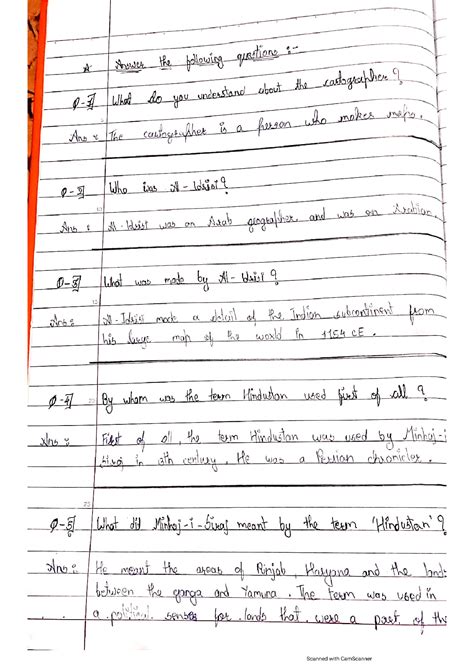 * Answer the following questions :-
Q-1] What do you understand about the cartographer ?
Ans : The cartographer is a person who makes maps.
Q-2] Who was Al-Idrisi ?
Ans : Al-Idrisi was an Arab geographer, and was an Arabian.
Q-3] What was made by Al-Idrisi ?
10
Ans : Al-Idrisi made a detail of the Indian subcontinent from
his large map of the world in 1154 CE.
Q-4] By whom was the term Hindustan used first of all ?
20
Ans : First of all, the term Hindustan was used by Minhaj-i-
Siraj in 13th century. He was a Persian chronicler.
25
Q-5] What did Minhaj-i-Siraj meant by the term 'Hindustan' ?
Ans : He meant the areas of Punjab, Haryana and the lands
between the ganga and Yamuna. The term was used in
a political senses for lands that were a part of the
Scanned with CamScanner